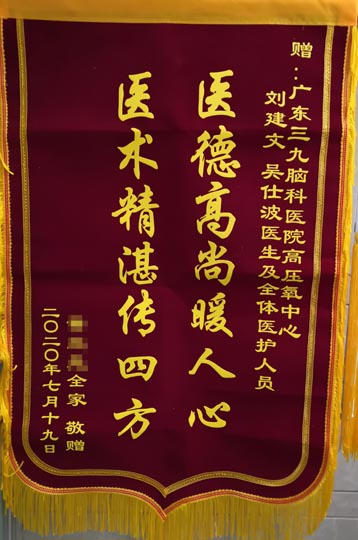 赠：广东三九脑科医院高压氧中心
刘建文 吴仕波医生及全体医护人员
医德高尚暖人心
医术精湛传四方
全家 敬赠
二〇二〇年七月十九日